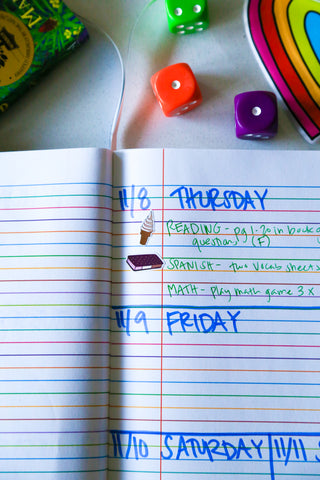 MA
11/8 THURSDAY
READING - pg 1-20 in book
questions (F)
SPANISH - two vocab sheets
MATH - play math game 3 x
11/9 FRIDAY
11/10 SATURDAY 11/11 S